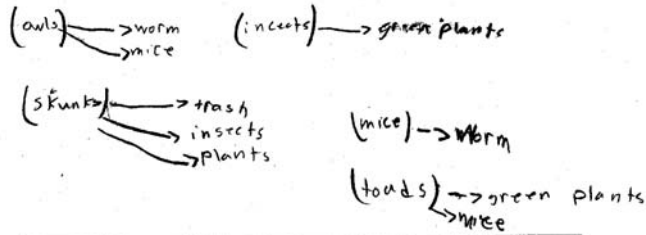 (owls) → worm
→ mice
(incects) → green plants
(skunks) → trash
→ insects
→ plants
(mice) → worm
(toads) → green plants
→ mice